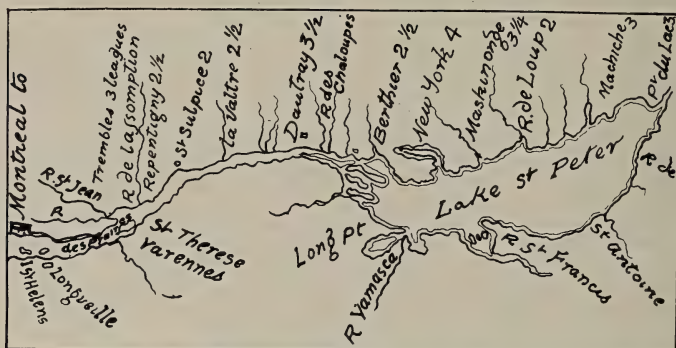 Montreal to
Trembles 3 leagues
R de Lassomption
Repentigny 2½
St Sulpuce 2
la Valtre 2½
Dautray 3½
R des
Chaloupes
Berthier 2½
New York 4
Maskinonge
3¼
R. de Loup 2
Machiche 3
Pt du Lac 3
R St Jean
R
des
St Therese
Varennes
Longueille
St Helens
Long Pt
Lake St Peter
R Yamasca
R St Francis
St Antoine
R de